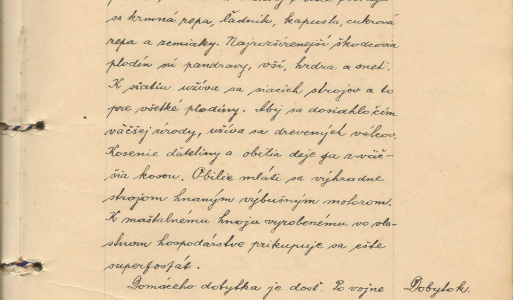 sa krmná repa, ľadník, kapusta, cukrová
repa a zemiaky. Najrozšírenejší škodcovia
plodín sú pandravy, vši, hrdza a sneť.
K siatiu užíva sa siacich strojov a to
pre všetké plodiny. Abý sa dosiahlo čím
väčšej úrody, užíva sa drevených válcov.
Kosenie ďateliny a obilia deje sa z väč-
šia kosou. Obilie mláti sa výhradne
strojom hnaným výbušným motorom.
K maštalnému hnoju vyrobenému vo vla-
stnom hospodárstve prikupuje sa ešte
superfosfát.
Domaceho dobytka je dosť. Po vojne
Dobytok.